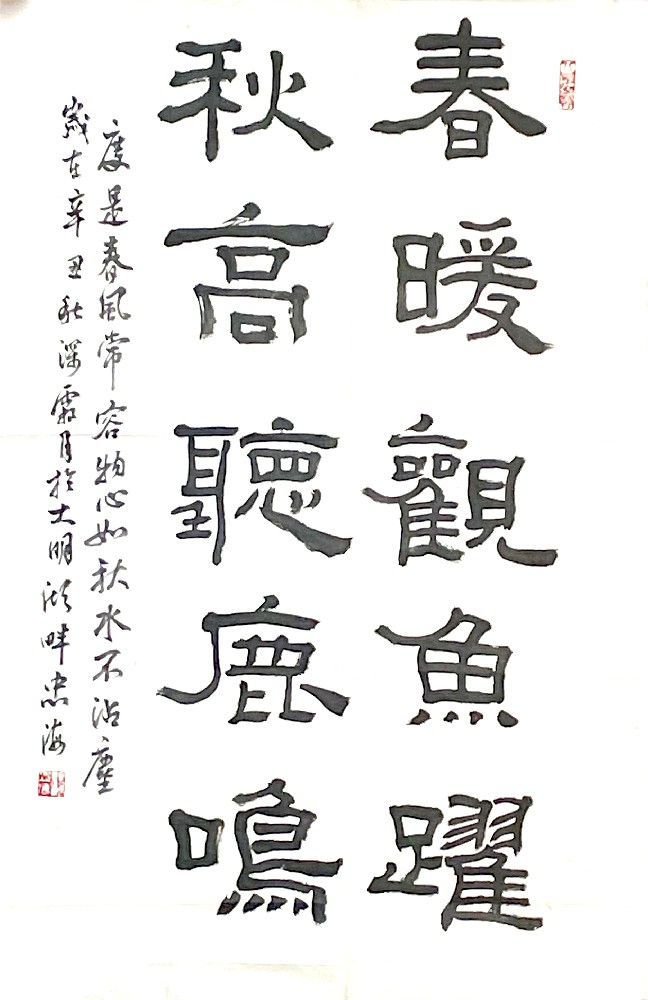 春暖觀魚躍
秋高聽鹿鳴
度是春風常容物心如秋水不沾塵
歲在辛丑秋深霜月於大明湖畔忠海